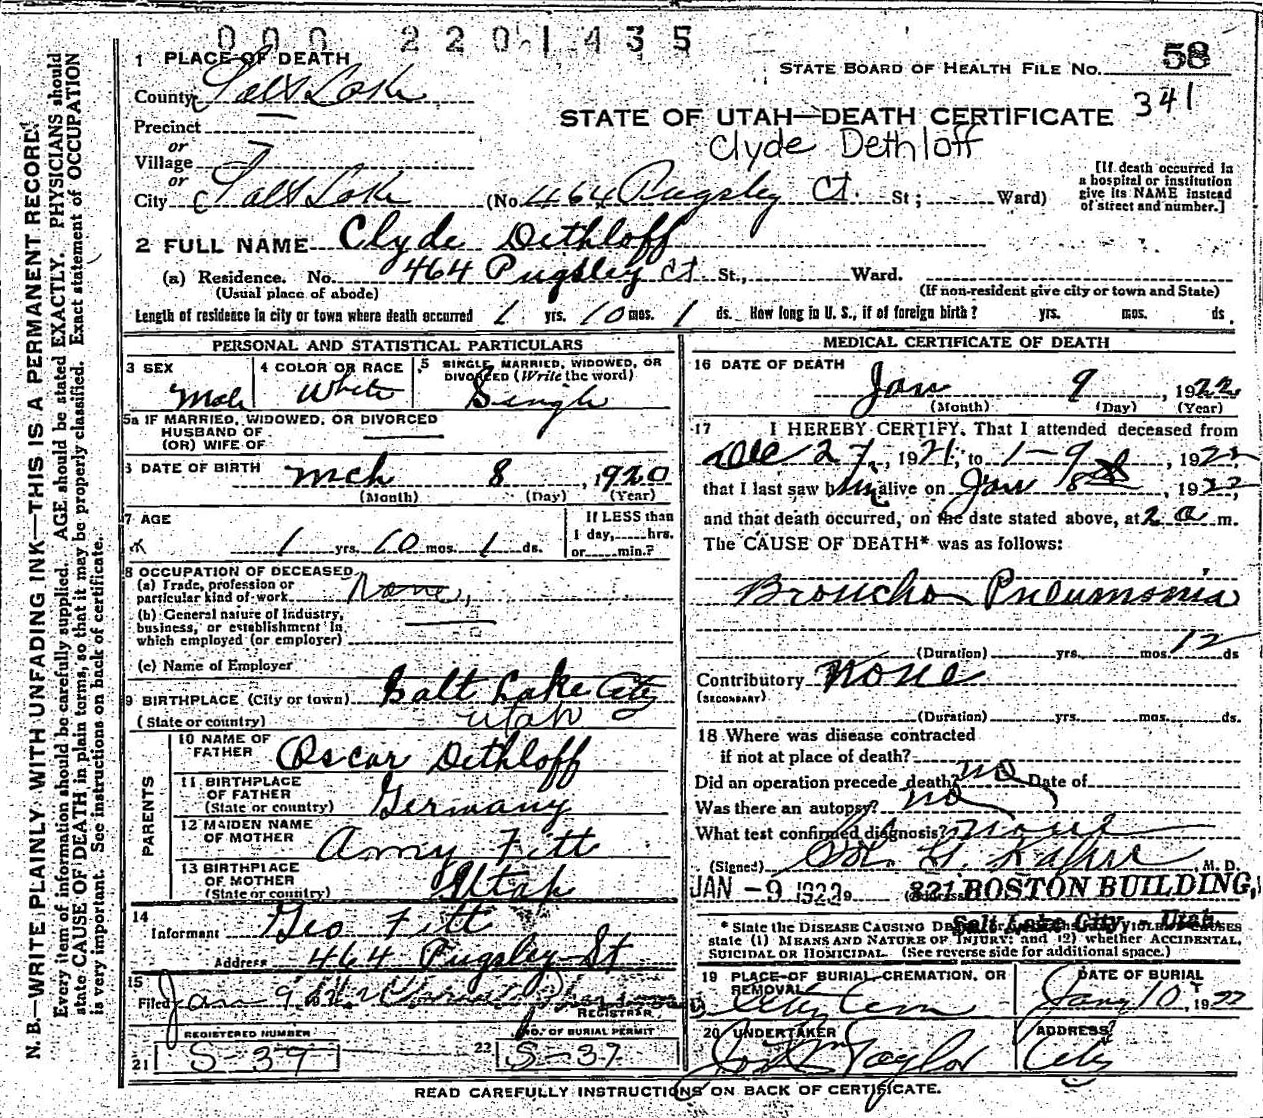 000 2201435
58
1 PLACE OF DEATH
STATE BOARD OF HEALTH FILE No.
County Salt Lake
341
STATE OF UTAH—DEATH CERTIFICATE
Precinct
Clyde Dethloff
or
Village
or
City Salt Lake (No. 464 Pugsley Ct. St; Ward)
[If death occurred in
a hospital or institution
give its NAME instead
of street and number.]
2 FULL NAME Clyde Dethloff
(a) Residence. No. 464 Pugsley Ct St., Ward.
(Usual place of abode) (If non-resident give city or town and State)
Length of residence in city or town where death occurred 1 yrs. 10 mos. 1 ds. How long in U. S., if of foreign birth? yrs. mos. ds.
PERSONAL AND STATISTICAL PARTICULARS
3 SEX
Male
4 COLOR OR RACE
White
5 SINGLE, MARRIED, WIDOWED, OR
DIVORCED (Write the word)
Single
5a IF MARRIED, WIDOWED, OR DIVORCED
HUSBAND OF
(OR) WIFE OF
6 DATE OF BIRTH Mch 8, 1920
(Month) (Day) (Year)
7 AGE
1 yrs. 10 mos. 1 ds.
If LESS than
1 day, hrs.
or min.?
8 OCCUPATION OF DECEASED
(a) Trade, profession or
particular kind of work None
(b) General nature of Industry,
business, or establishment in
which employed (or employer)
(c) Name of Employer
9 BIRTHPLACE (City or town) Salt Lake City
(State or country) Utah
PARENTS
10 NAME OF
FATHER Oscar Dethloff
11 BIRTHPLACE
OF FATHER
(State or country) Germany
12 MAIDEN NAME
OF MOTHER Amy Fitt
13 BIRTHPLACE
OF MOTHER
(State or country) Utah
14
Informant Geo Fitt
Address 464 Pugsley St
15
Filed Jan 9
REGISTRAR
REGISTERED NUMBER
21 S-39
NO. OF BURIAL PERMIT
22 S-37
MEDICAL CERTIFICATE OF DEATH
16 DATE OF DEATH
Jan 9, 1922
(Month) (Day) (Year)
17 I HEREBY CERTIFY, That I attended deceased from
Dec 27, 1921, to 1-9, 1922
that I last saw him alive on Jan 8th, 1922
and that death occurred, on the date stated above, at 2 a m.
The CAUSE OF DEATH* was as follows:
Broncho Pneumonia
(Duration) yrs. mos. 12 ds
Contributory None
(SECONDARY)
(Duration) yrs. mos. ds.
18 Where was disease contracted
if not at place of death?
Did an operation precede death? no Date of
Was there an autopsy? no
What test confirmed diagnosis? none
(Signed) M. D.
JAN -9 1922 821 BOSTON BUILDING,
Salt Lake City - Utah
* State the DISEASE CAUSING DEATH, or, in deaths from VIOLENT CAUSES
state (1) MEANS AND NATURE OF INJURY; and (2) whether ACCIDENTAL,
SUICIDAL OR HOMICIDAL. (See reverse side for additional space.)
19 PLACE OF BURIAL, CREMATION, OR
REMOVAL
City Cem
DATE OF BURIAL
Jany 10, 1922
20 UNDERTAKER
Taylor
ADDRESS
City
READ CAREFULLY INSTRUCTIONS ON BACK OF CERTIFICATE.
N. B.—WRITE PLAINLY WITH UNFADING INK—THIS IS A PERMANENT RECORD.
Every item of information should be carefully supplied. AGE should be stated EXACTLY. PHYSICIANS should
state CAUSE OF DEATH in plain terms, so that it may be properly classified. Exact statement of OCCUPATION
is very important. See instructions on back of certificate.